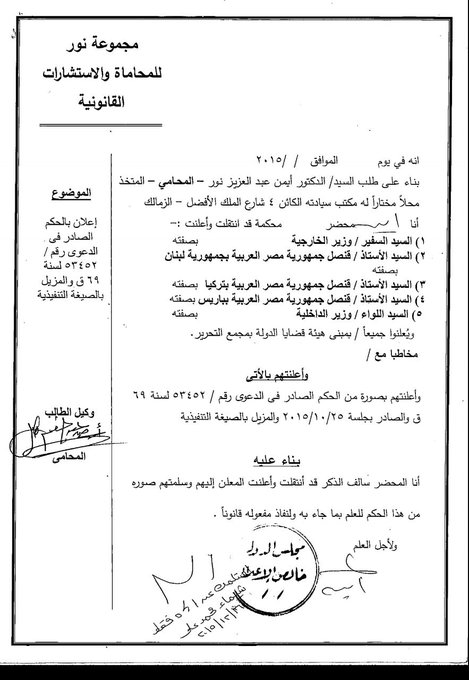 مجموعة نور
للمحاماة والاستشارات
القانونية
انه في يوم الموافق / / ٢٠١٥
بناء على طلب السيد/ الدكتور أيمن عبد العزيز نور – المحامي – المتخذ
محلاً مختاراً له مكتب سيادته الكائن ٤ شارع الملك الأفضل – الزمالك
أنا محضر محكمة قد انتقلت وأعلنت :–
١) السيد السفير / وزير الخارجية بصفته
٢) السيد الأستاذ / قنصل جمهورية مصر العربية بجمهورية لبنان
بصفته
٣) السيد الأستاذ / قنصل جمهورية مصر العربية بتركيا بصفته
٤) السيد الأستاذ / قنصل جمهورية مصر العربية بباريس بصفته
٥) السيد اللواء / وزير الداخلية بصفته
ويُعلنوا جميعاً / بمبنى هيئة قضايا الدولة بمجمع التحرير.
مخاطبا مع /
وأعلنتهم بالأتى
وأعلنتهم بصورة من الحكم الصادر فى الدعوى رقم / ٥٣٤٥٢ لسنة ٦٩
ق والصادر بجلسة ٢٠١٥/١٠/٢٥ والمزيل بالصيغة التنفيذية
بناء عليه
أنا المحضر سالف الذكر قد أنتقلت وأعلنت المعلن إليهم وسلمتهم صوره
من هذا الحكم للعلم بما جاء به ولنفاذ مفعوله قانوناً .
ولأجل العلم
الموضوع
إعلان بالحكم
الصادر فى
الدعوى رقم /
٥٣٤٥٢ لسنة
٦٩ ق والمزيل
بالصيغة التنفيذية
وكيل الطالب
المحامى
مجلس الدولة
خالص الإعلان